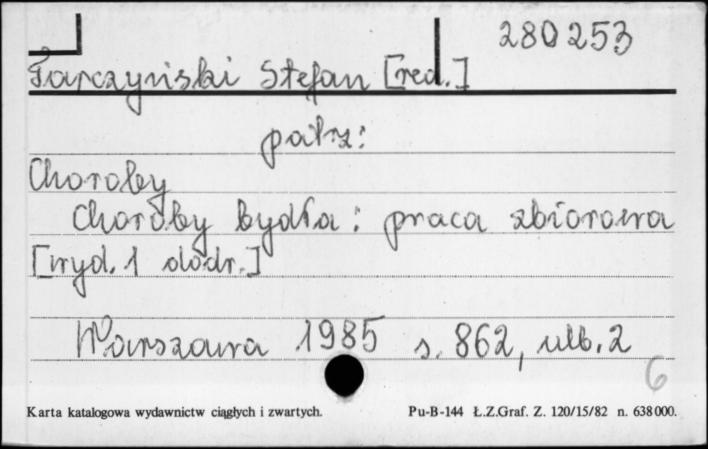 280253
Tarczyński Stefan [red.]
patrz:
Choroby
Choroby bydła: praca zbiorowa
[wyd. 1 dodr.]
Warszawa 1985 s. 862, nlb. 2
6
Karta katalogowa wydawnictw ciągłych i zwartych. Pu-B-144 Ł.Z.Graf. Z. 120/15/82 n. 638000.